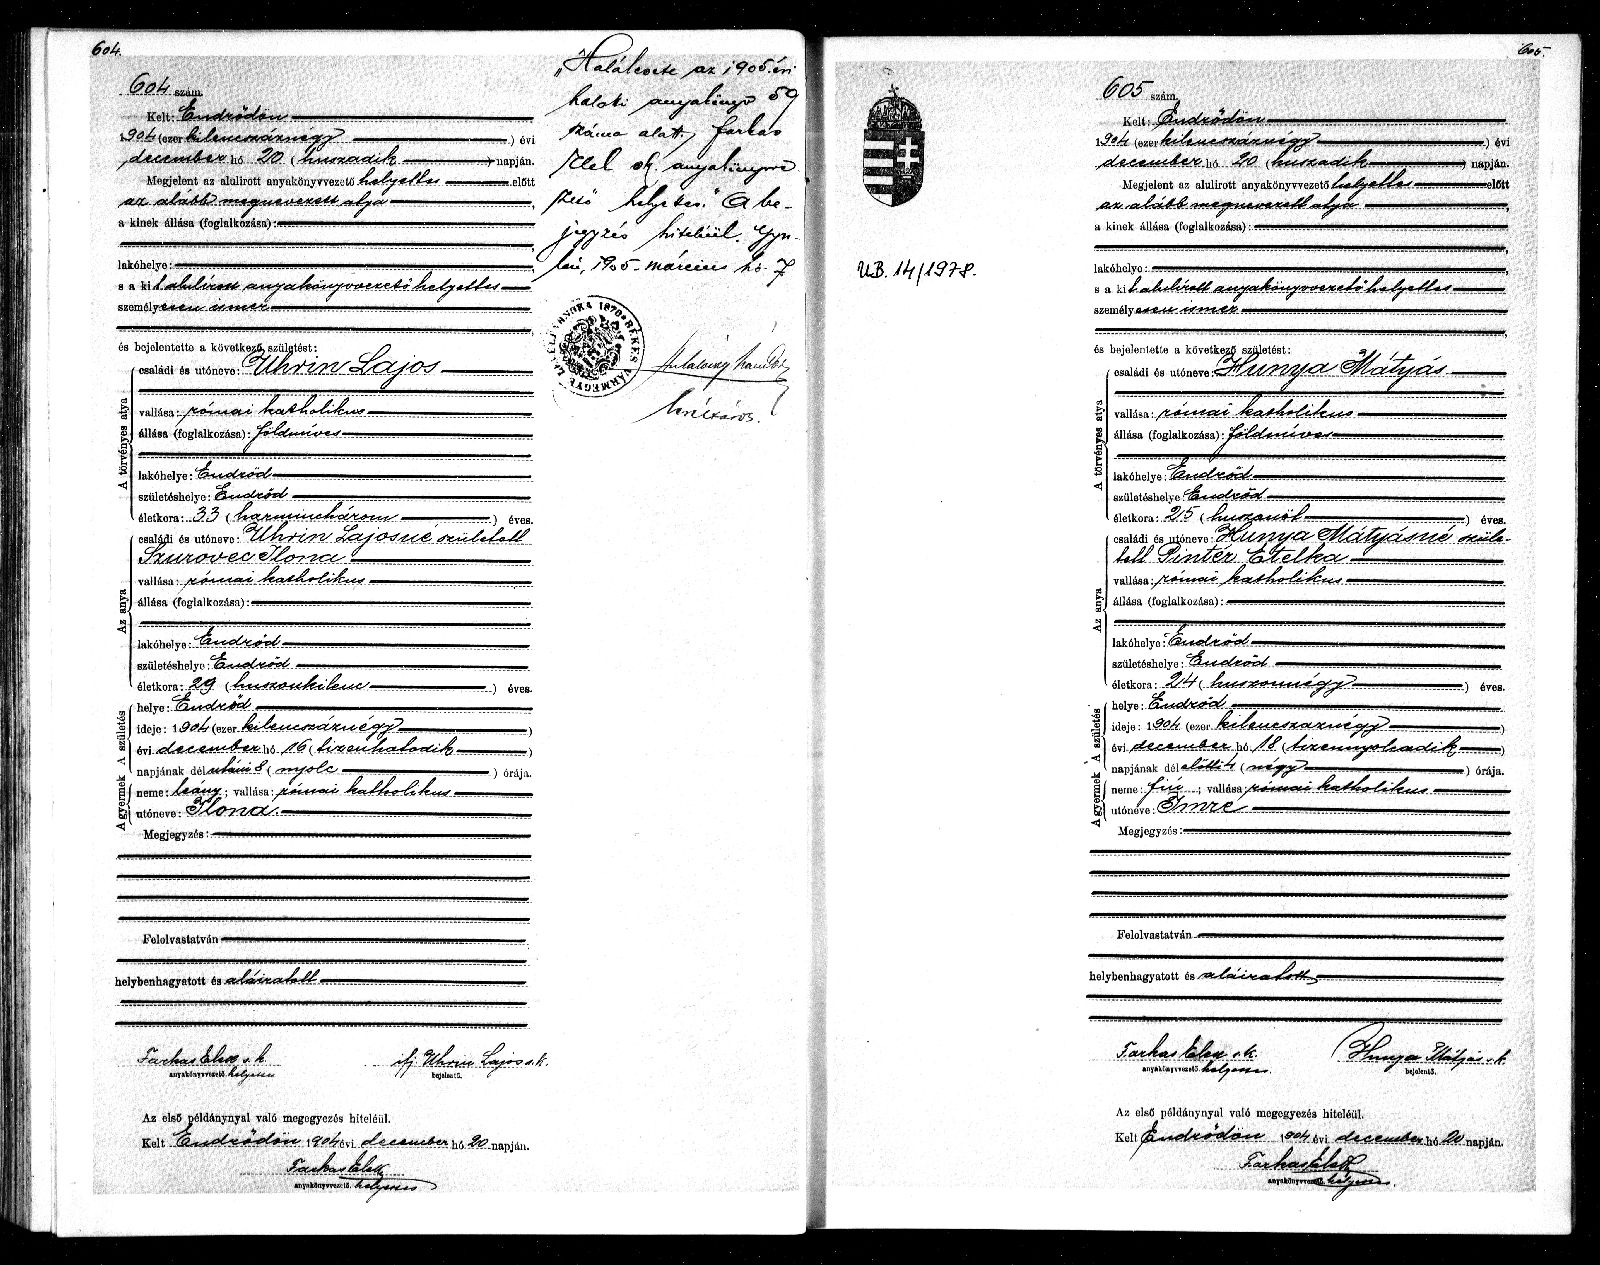 604.
604 szám.
Kelt: Endrődön
1904 (ezer kilencszáznégy) évi
december hó 20 (huszadik) napján.
Megjelent az alulirott anyakönyvvezető helyettes előtt
az alább megnevezett atya
a kinek állása (foglalkozása):
lakóhelye:
s a kit alulirott anyakönyvvezető helyettes
személyesen ismer
és bejelentette a következő születést:
A törvényes atya
családi és utóneve: Uhrin Lajos
vallása: római katholikus
állása (foglalkozása): földmíves
lakóhelye: Endrőd
születéshelye: Endrőd
életkora: 33 (harminchárom) éves.
Az anya
családi és utóneve: Uhrin Lajosné született
Szurovec Ilona
vallása: római katholikus
állása (foglalkozása):
lakóhelye: Endrőd
születéshelye: Endrőd
életkora: 29 (huszonkilenc) éves.
A születés
helye: Endrőd
ideje: 1904 (ezer kilencszáznégy)
évi december hó 16 (tizenhatodik)
napjának délutáni 8 (nyolc) órája.
A gyermek
neme: leány; vallása: római katholikus
utóneve: Ilona.
Megjegyzés:
Felolvastatván
helybenhagyatott és aláiratott
Farkas Elek s. k. ifj Uhrin Lajos s. k.
anyakönyvvezető helyettes bejelentő.
Az első példánynyal való megegyezés hiteléül.
Kelt Endrődön 1904 évi december hó 20 napján.
Farkas Elek
anyakönyvvezető. helyettes
„Halálesete az 1905. évi
haloti anyakönyv 59
száma alatt, Farkas
Elek sk. anyakönyvve
zető helyettes." A be-
jegyzés hiteléül. Gyu-
lán, 1905. március hó 7
1870 BÉKÉS VÁRMEGYE
605.
605 szám.
Kelt: Endrődön
1904 (ezer kilencszáznégy) évi
december hó 20 (huszadik) napján.
Megjelent az alulirott anyakönyvvezető helyettes előtt
az alább megnevezett atya
a kinek állása (foglalkozása):
lakóhelye:
s a kit alulirott anyakönyvvezető helyettes
személyesen ismer
UB. 14/1978.
és bejelentette a következő születést:
A törvényes atya
családi és utóneve: Hunya Mátyás
vallása: római katholikus
állása (foglalkozása): földmíves
lakóhelye: Endrőd
születéshelye Endrőd
életkora: 25 (huszonöt) éves.
Az anya
családi és utóneve: Hunya Mátyásné szüle-
tett Pintér Etelka
vallása: római katholikus
állása (foglalkozása):
lakóhelye: Endrőd
születéshelye: Endrőd
életkora: 24 (huszonnégy) éves.
A születés
helye: Endrőd
ideje: 1904 (ezer kilencszáznégy)
évi december hó 18 (tizennyolcadik)
napjának délelőtti 4 (négy) órája.
A gyermek
neme: fiú; vallása: római katholikus
utóneve: Imre
Megjegyzés:
Felolvastatván
helybenhagyatott és aláiratott
Farkas Elek s. k. Hunya Mátyás s. k.
anyakönyvvezető helyettes. bejelentő.
Az első példánynyal való megegyezés hiteléül.
Kelt Endrődön 1904 évi december hó 20 napján.
Farkas Elek
anyakönyvvezető. helyettes.